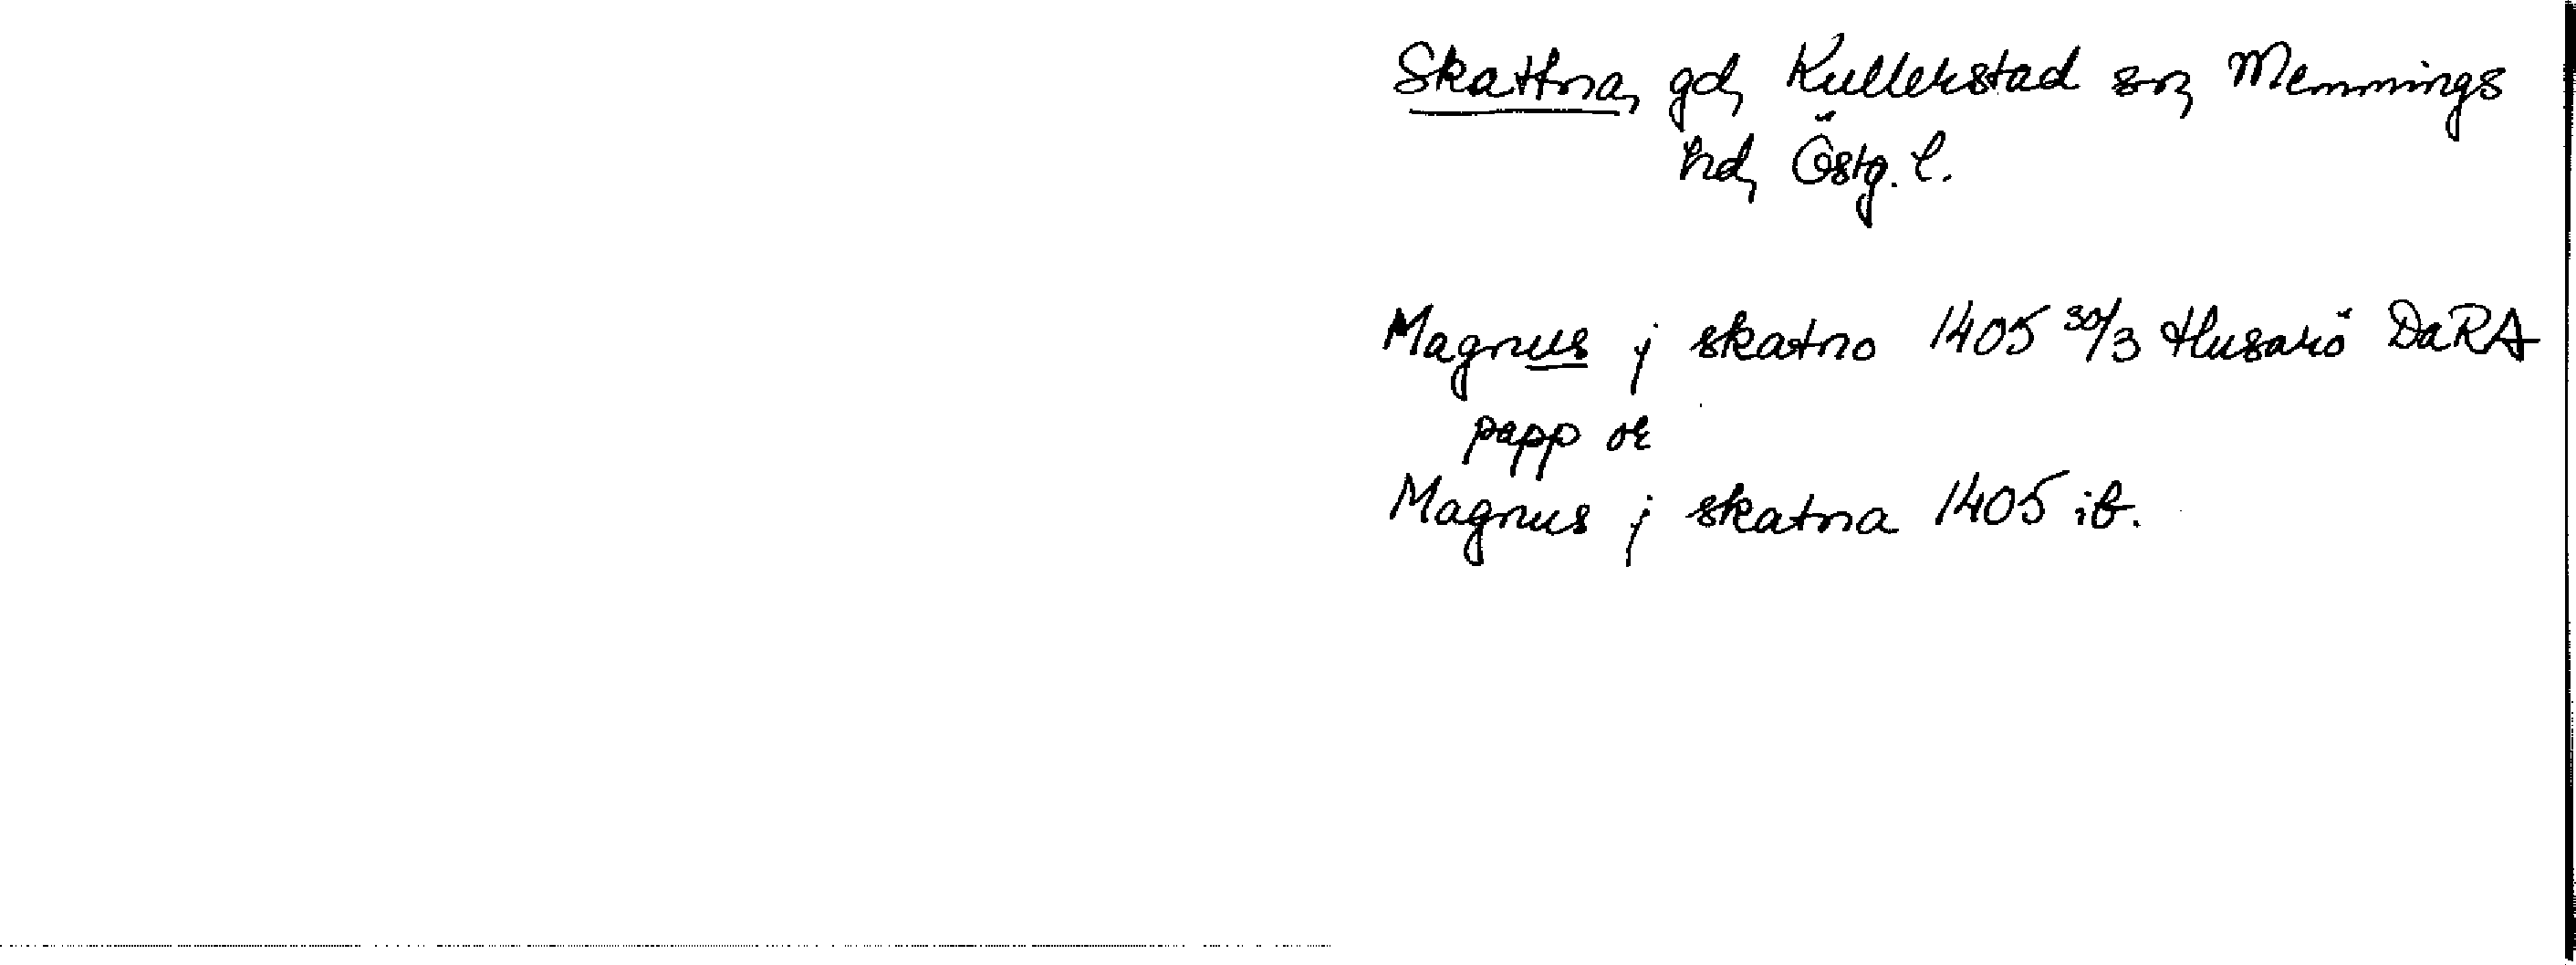 Skattna, gd, Kullerstad sn, Memmings
hd, Östg. l.
Magnus j skatno 1405 30/3 Husarö DaRA
papp or
Magnus j skatna 1405 ib.